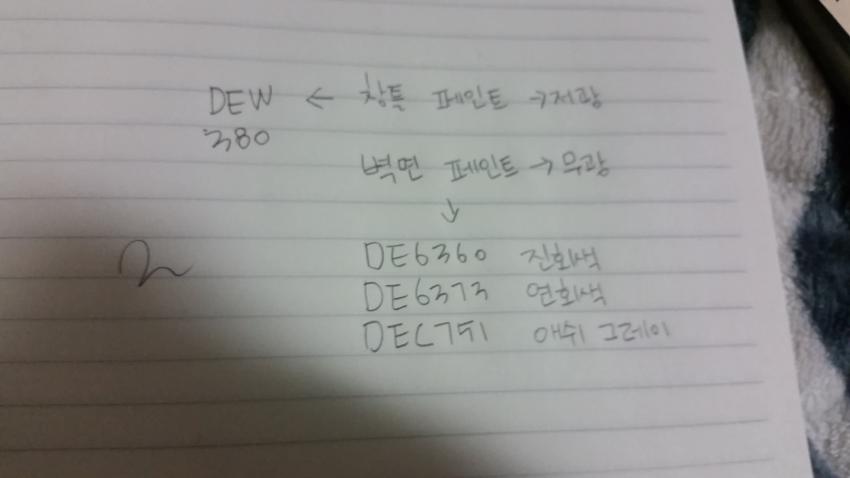 DEW ← 창틀 페인트 → 저광
380
벽면 페인트 → 무광
↓
DE6360 진회색
DE6373 연회색
DEC751 애쉬 그레이